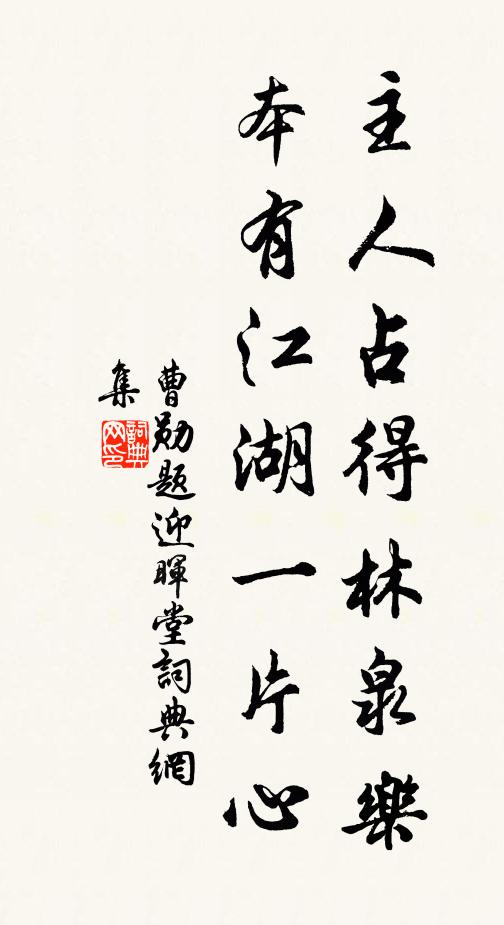 主人占得林泉樂
本有江湖一片心
曹勛題迎暉堂詞典網
集
詞典網印